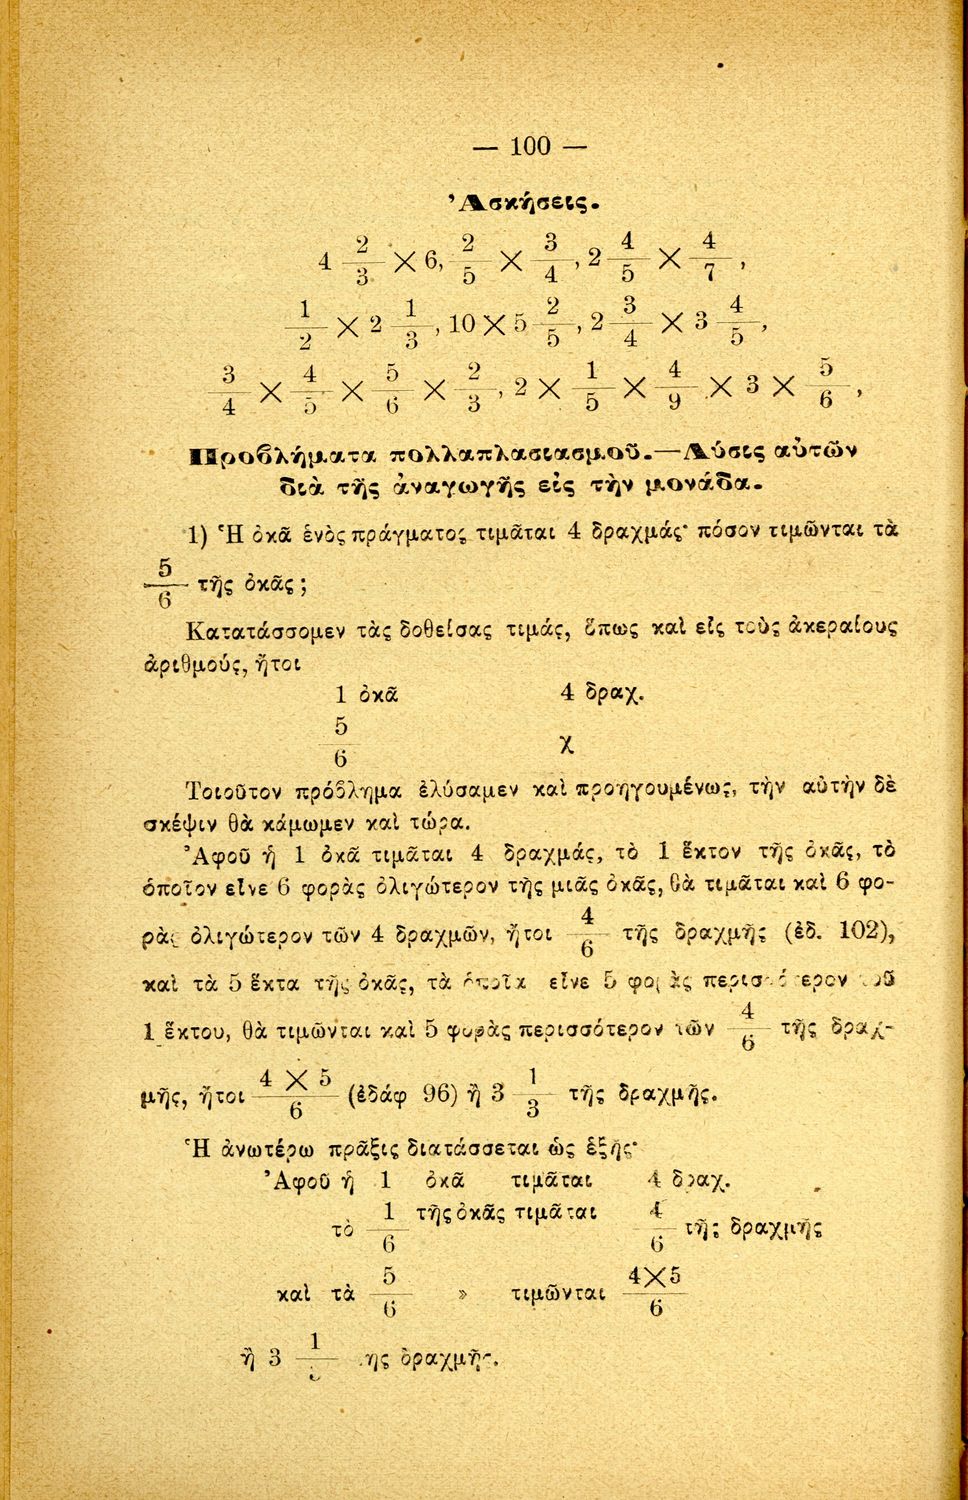 — 100 —
Ἀσκήσεις.
4 2/3 × 6, 2/5 × 3/4, 2 4/5 × 4/7,
1/2 × 2 1/3, 10 × 5 2/5, 2 3/4 × 3 4/5,
3/4 × 4/5 × 5/6 × 2/3, 2 × 1/5 × 4/9 × 3 × 5/6,
Προβλήματα πολλαπλασιασμοῦ.—Λύσις αὐτῶν
διὰ τῆς ἀναγωγῆς εἰς τὴν μονάδα.
1) Ἡ ὀκᾶ ἑνὸς πράγματος τιμᾶται 4 δραχμάς· πόσον τιμῶνται τὰ
5/6 τῆς ὀκᾶς;
Κατατάσσομεν τὰς δοθείσας τιμάς, ὅπως καὶ εἰς τοὺς ἀκεραίους
ἀριθμούς, ἤτοι
1 ὀκᾶ 4 δραχ.
5/6 χ
Τοιοῦτον πρόβλημα ἐλύσαμεν καὶ προηγουμένως, τὴν αὐτὴν δὲ
σκέψιν θὰ κάμωμεν καὶ τώρα.
Ἀφοῦ ἡ 1 ὀκᾶ τιμᾶται 4 δραχμάς, τὸ 1 ἕκτον τῆς ὀκᾶς, τὸ
ὁποῖον εἶνε 6 φορὰς ὀλιγώτερον τῆς μιᾶς ὀκᾶς, θὰ τιμᾶται καὶ 6 φο-
ρὰς ὀλιγώτερον τῶν 4 δραχμῶν, ἤτοι 4/6 τῆς δραχμῆς (ἐδ. 102),
καὶ τὰ 5 ἕκτα τῆς ὀκᾶς, τὰ ὁποῖα εἶνε 5 φορὰς περισσότερον τοῦ
1 ἕκτου, θὰ τιμῶνται καὶ 5 φορὰς περισσότερον τῶν 4/6 τῆς δραχ-
μῆς, ἤτοι 4 × 5/6 (ἐδάφ 96) ἢ 3 1/3 τῆς δραχμῆς.
Ἡ ἀνωτέρω πρᾶξις διατάσσεται ὡς ἑξῆς·
Ἀφοῦ ἡ 1 ὀκᾶ τιμᾶται 4 δραχ.
τὸ 1/6 τῆς ὀκᾶς τιμᾶται 4/6 τῆς δραχμῆς
καὶ τὰ 5/6 » τιμῶνται 4×5/6
ἢ 3 1/3 τῆς δραχμῆς.